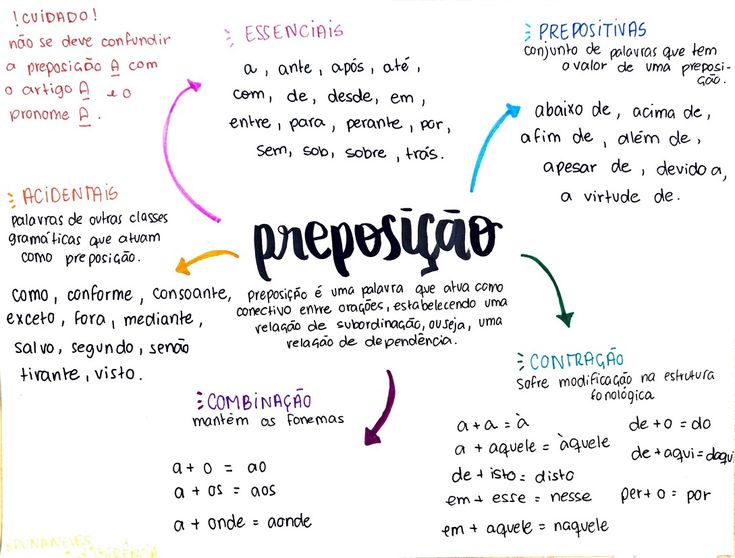 !CUIDADO!
não se deve confundir
a preposição A com
o artigo A e o
pronome A.
ESSENCIAIS
a, ante, após, até,
com, de, desde, em,
entre, para, perante, por,
sem, sob, sobre, trás.
PREPOSITIVAS
conjunto de palavras que tem
o valor de uma preposi-
ção.
abaixo de, acima de,
afim de, além de,
apesar de, devido a,
a virtude de.
ACIDENTAIS
palavras de outras classes
gramáticas que atuam
como preposição.
como, conforme, consoante,
exceto, fora, mediante,
salvo, segundo, senão
tirante, visto.
preposição
preposição é uma palavra que atua como
conectivo entre orações, estabelecendo uma
relação de subordinação, ou seja, uma
relação de dependência.
COMBINAÇÃO
mantém os fonemas
a + o = ao
a + os = aos
a + onde = aonde
CONTRAÇÃO
sofre modificação na estrutura
fonológica
a + a = à
a + aquele = àquele
de + isto = disto
em + esse = nesse
em + aquele = naquele
de + o = do
de + aqui = daqui
per + o = por